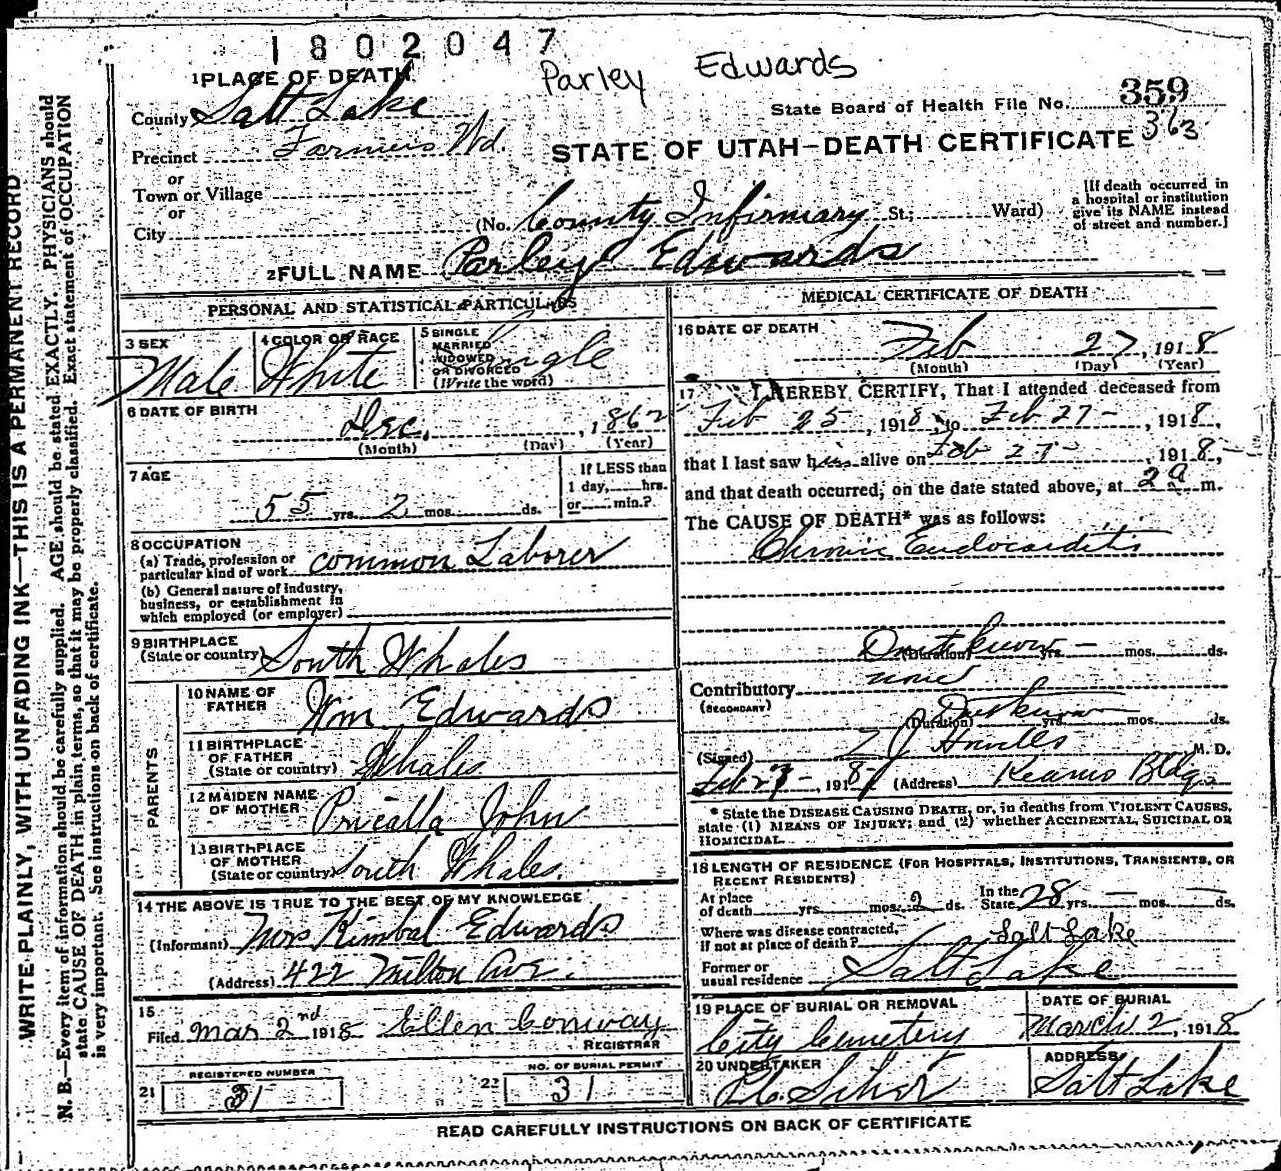 1802047
Parley Edwards
1 PLACE OF DEATH
County Salt Lake
State Board of Health File No. 359
363
Precinct Farmers Wd.
STATE OF UTAH—DEATH CERTIFICATE
or
Town or Village
or
City
(No. County Infirmary St.; Ward)
[If death occurred in
a hospital or institution
give its NAME instead
of street and number.]
2 FULL NAME Parley Edwards
PERSONAL AND STATISTICAL PARTICULARS
3 SEX
Male
4 COLOR OR RACE
White
5 SINGLE
MARRIED
WIDOWED
OR DIVORCED
(Write the word)
Single
6 DATE OF BIRTH
Dec. , 1862
(Month) (Day) (Year)
7 AGE
55 yrs. 2 mos. ds.
If LESS than
1 day, hrs.
or min.?
8 OCCUPATION
(a) Trade, profession or
particular kind of work common Laborer
(b) General nature of industry,
business, or establishment in
which employed (or employer)
9 BIRTHPLACE
(State or country) South Whales
PARENTS
10 NAME OF
FATHER Wm Edwards
11 BIRTHPLACE
OF FATHER
(State or country) Whales
12 MAIDEN NAME
OF MOTHER Pricalla John
13 BIRTHPLACE
OF MOTHER
(State or country) South Whales.
14 THE ABOVE IS TRUE TO THE BEST OF MY KNOWLEDGE
(Informant) Mrs Kimbal Edwards
(Address) 422 Milton Ave.
15
Filed Mar 2nd 1918 Ellen Conway
REGISTRAR
21 REGISTERED NUMBER
31
22 NO. OF BURIAL PERMIT
31
MEDICAL CERTIFICATE OF DEATH
16 DATE OF DEATH
Feb 27, 1918
(Month) (Day) (Year)
17 I HEREBY CERTIFY, That I attended deceased from
Feb 25, 1918, to Feb 27 - , 1918,
that I last saw him alive on Feb 27 - , 1918,
and that death occurred, on the date stated above, at 2 a m.
The CAUSE OF DEATH* was as follows:
Chronic Endocarditis
Dont know
(Duration) yrs. mos. ds.
Contributory none
(SECONDARY)
Dont know
(Duration) yrs. mos. ds.
(Signed) M. D.
Feb 27 - , 1918 (Address) Kearns Bldg.
* State the DISEASE CAUSING DEATH, or, in deaths from VIOLENT CAUSES,
state (1) MEANS OF INJURY; and (2) whether ACCIDENTAL, SUICIDAL OR
HOMICIDAL.
18 LENGTH OF RESIDENCE (FOR HOSPITALS, INSTITUTIONS, TRANSIENTS, OR
RECENT RESIDENTS)
At place
of death yrs. mos. 2 ds.
In the
State 28 yrs. — —ds.
Where was disease contracted,
if not at place of death? Salt Lake
Former or
usual residence Salt Lake
19 PLACE OF BURIAL OR REMOVAL
City Cemetery
DATE OF BURIAL
March 2, 1918
20 UNDERTAKER
ADDRESS
Salt Lake
READ CAREFULLY INSTRUCTIONS ON BACK OF CERTIFICATE
WRITE PLAINLY, WITH UNFADING INK—THIS IS A PERMANENT RECORD
N. B.—Every item of information should be carefully supplied. AGE should be stated EXACTLY. PHYSICIANS should
state CAUSE OF DEATH in plain terms, so that it may be properly classified. Exact statement of OCCUPATION
is very important. See instructions on back of certificate.